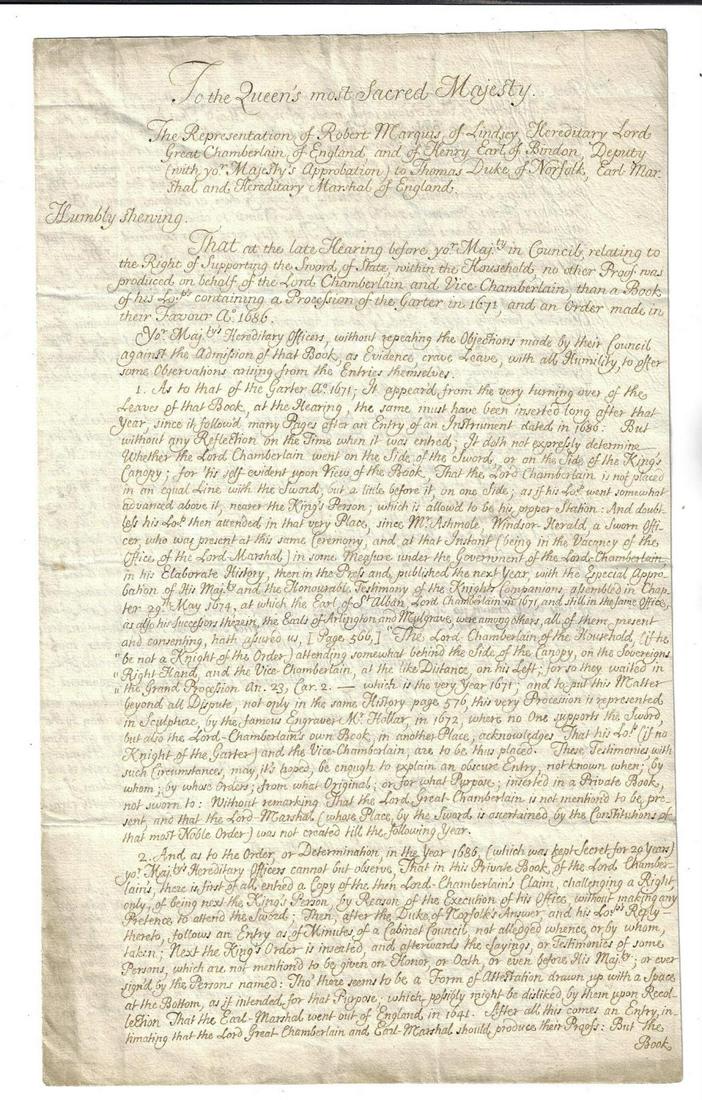 To the Queen's most Sacred Majesty.
The Representation of Robert Marquis of Lindsey Hereditary Lord
Great Chamberlain of England and of Henry Earl of Bindon Deputy
(with yor. Majesty's Approbation) to Thomas Duke of Norfolk, Earl Mar-
shal and Hereditary Marshal of England.
Humbly shewing.
That at the late Hearing before yor. Maj.ty in Council, relating to
the Right of Supporting the Sword of State, within the Household, no other Proof was
produced on behalf of the Lord Chamberlain and Vice Chamberlain than a Book
of his Lo.ps containing a Procession of the Garter in 1671, and an Order made in
their Favour Ao. 1686.
Yor. Maj.tys Hereditary Officers, without repeating the Objections made by their Council
against the Admission of that Book, as Evidence, crave Leave, with all Humility, to offer
some Observations arising from the Entries themselves.
1. As to that of the Garter Ao. 1671; It appeard, from the very turning over of the
Leaves of that Book, at the Hearing, the same must have been inserted long after that
Year, since it follow'd many Pages after an Entry of an Instrument dated in 1686: But
without any Reflection on the Time when it was entred; It doth not expressly determine
Whether the Lord Chamberlain went on the Side of the Sword, or on the Side of the King's
Canopy; for 'tis self-evident upon View of the Book, That the Lord Chamberlain is not placed
in an equal Line with the Sword, but a little before it, on one Side; as if his Lop. went somewhat
advanced above it, nearer the King's Person; which is allow'd to be his proper Station: And doubt-
less his Lop. then attended in that very Place, since Mr. Ashmole, Windsor-Herald, a Sworn Offi-
cer, who was present at this same Ceremony, and at that Instant (being in the Vacancy of the
Office of the Lord-Marshal) in some Measure under the Government of the Lord-Chamberlain,
in his Elaborate History, then in the Press and published the next Year, with the Especial Appro-
bation of His Maj.ty and the Honourable Testimony of the Knights Companions assembled in Chap-
ter 29th. May 1674, at which the Earl of St. Alban, Lord Chamberlain in 1671, and still in the same Office,
as also his Successors therein, the Earls of Arlington and Mulgrave, were among others, all of them present
and consenting, hath assured us, [Page 566,] "The Lord Chamberlain of the Household, (if he
" be not a Knight of the Order) attending somewhat behind the Side of the Canopy, on the Sovereigns
" Right Hand, and the Vice-Chamberlain, at the like Distance, on his Left; for so they waited in
" the Grand Procession An. 23, Car. 2. — which is the very Year 1671; and to put this Matter
beyond all Dispute, not only in the same History page 576 this very Procession is represented
in Sculpture, by the famous Engraver Mr. Hollar, in 1672, where no One supports the Sword,
but also the Lord-Chamberlain's own Book, in another Place, acknowledges That his Lop. (if no
Knight of the Garter) and the Vice-Chamberlain, are to be thus placed. These Testimonies with
such Circumstances, may, it's hoped, be enough to explain an obscure Entry, not known when; by
whom; by whose Orders; from what Original; or for what Purpose; inserted in a Private Book,
not sworn to: Without remarking That the Lord Great-Chamberlain is not mention'd to be pre-
sent, and that the Lord Marshal (whose Place, by the Sword is ascertained by the Constitutions of
that most Noble Order) was not created till the following Year.
2. And as to the Order, or Determination, in the Year 1686, (which was kept Secret for 20 Years)
yor. Maj.tys Hereditary Officers cannot but observe, That in this Private Book, of the Lord Chamber-
lain's, there is first of all entred a Copy of the then Lord-Chamberlain's Claim, challenging a Right,
only, of being next the King's Person, by Reason of the Execution of his Office, without making any
Pretence to attend the Sword; Then, after the Duke of Norfolk's Answer, and his Lo.ps Reply
thereto, follows an Entry as of Minutes of a Cabinet Council, not alledged whence, or by whom,
taken; Next the King's Order is inserted, and afterwards the Sayings, or Testimonies of some
Persons, which are not mention'd to be given on Honor, or Oath, or even before His Maj.ty; or ever
sign'd by the Persons named: Tho' there seems to be a Form of Attestation drawn up with a Space
at the Bottom, as if intended for that Purpose; which, possibly might be disliked by them upon Recol-
lection That the Earl-Marshal went out of England in 1641. After all this comes an Entry, in-
timating that the Lord Great Chamberlain and Earl-Marshal should produce their Proofs: But the
Book